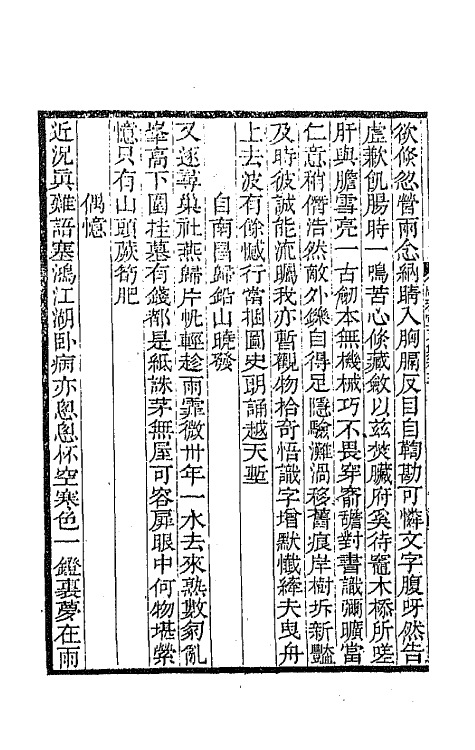 欲倏忽營兩念納睛入胸膈反目自鞫勘可憐文字腹呀然告
虛歉飢腸時一鳴苦心倏藏斂以茲焚臟府奚待竈木㮇所嗟
肝與膽雪亮一古劒本無機械巧不畏穿窬膽對書識彌曠當
仁意稍僭浩然敵外鑠自得足隱驗灘渦移舊痕岸樹坼新豔
及時彼誠能流矚我亦暫觀物拾奇悟識字增默懺縴夫曳舟
上去波有餘憾行當梱圖史朗誦越天塹
自南昌歸鉛山曉發
又逐尋巢社燕歸片帆輕趁雨霏微卅年一水去來熟數㓜亂
峯高下圍挂墓有錢都是紙誅茅無屋可容扉眼中何物堪縈
憶只有山頭蕨筍肥
偶憶
近況眞難語塞鴻江湖卧病亦悤悤杯空寒色一鐙裏夢在雨